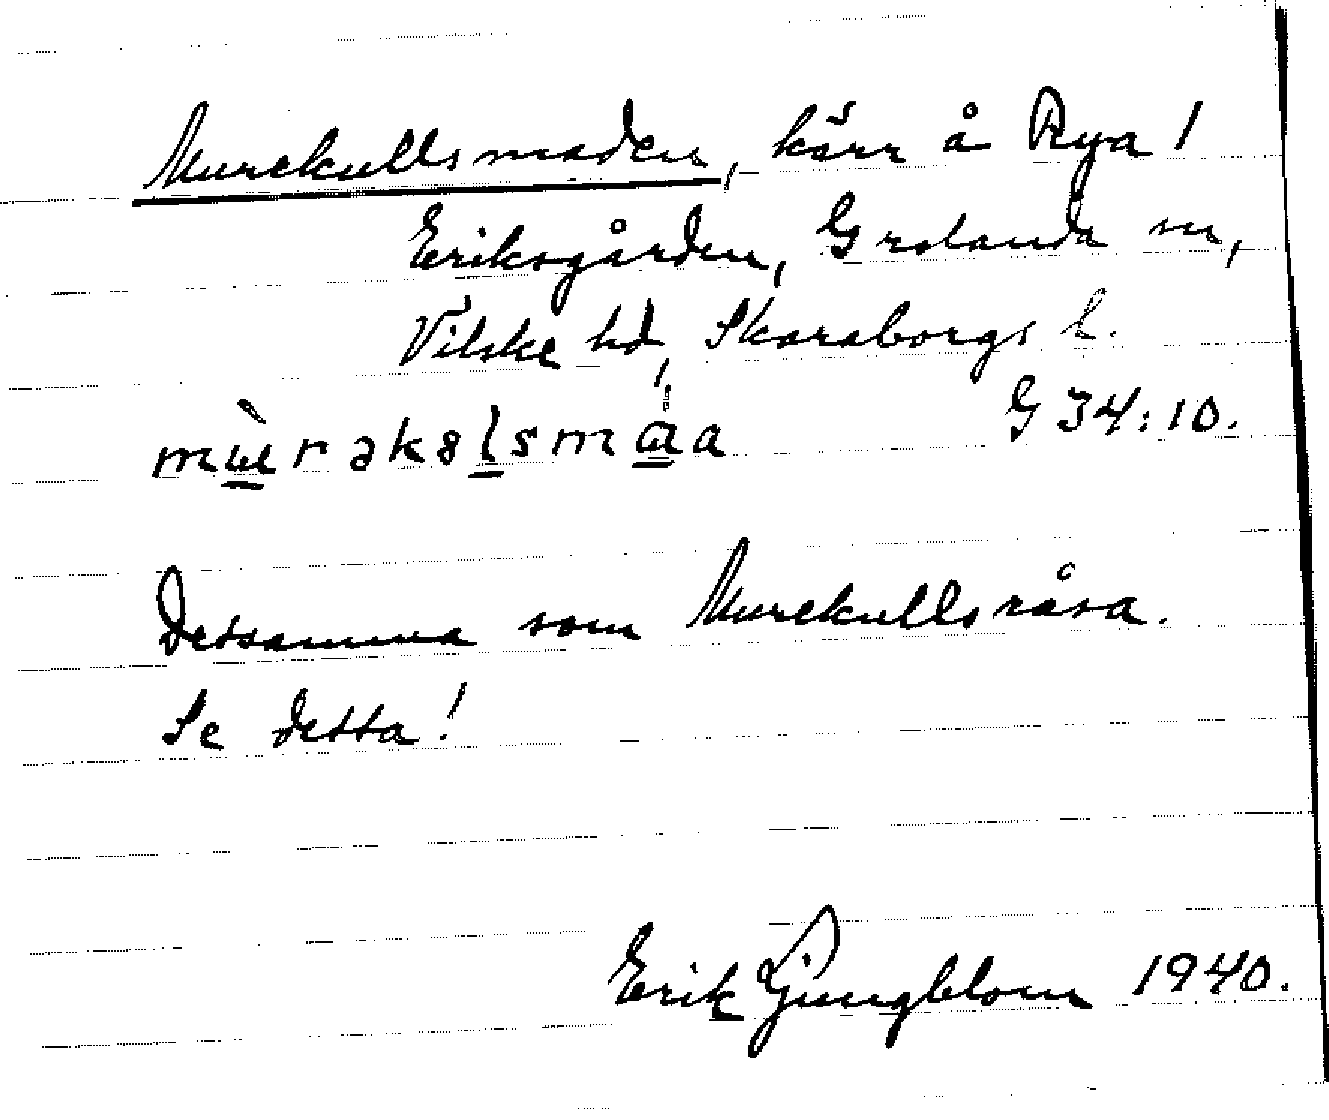 Murekullsmaden, kärr å Rya 1
Eriksgården, Grolanda sn,
Vilske hd, Skaraborgs l.
G 34:10.
Detsamma som Murekullsråsa.
Se detta!
Erik Ljungblom 1940.